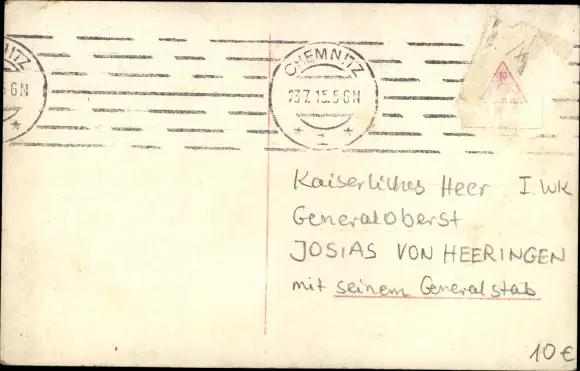 CHEMNITZ
23.7.15.5-6N
Kaiserliches Heer I. WK
Generaloberst
JOSIAS VON HEERINGEN
mit seinem Generalstab
10 €